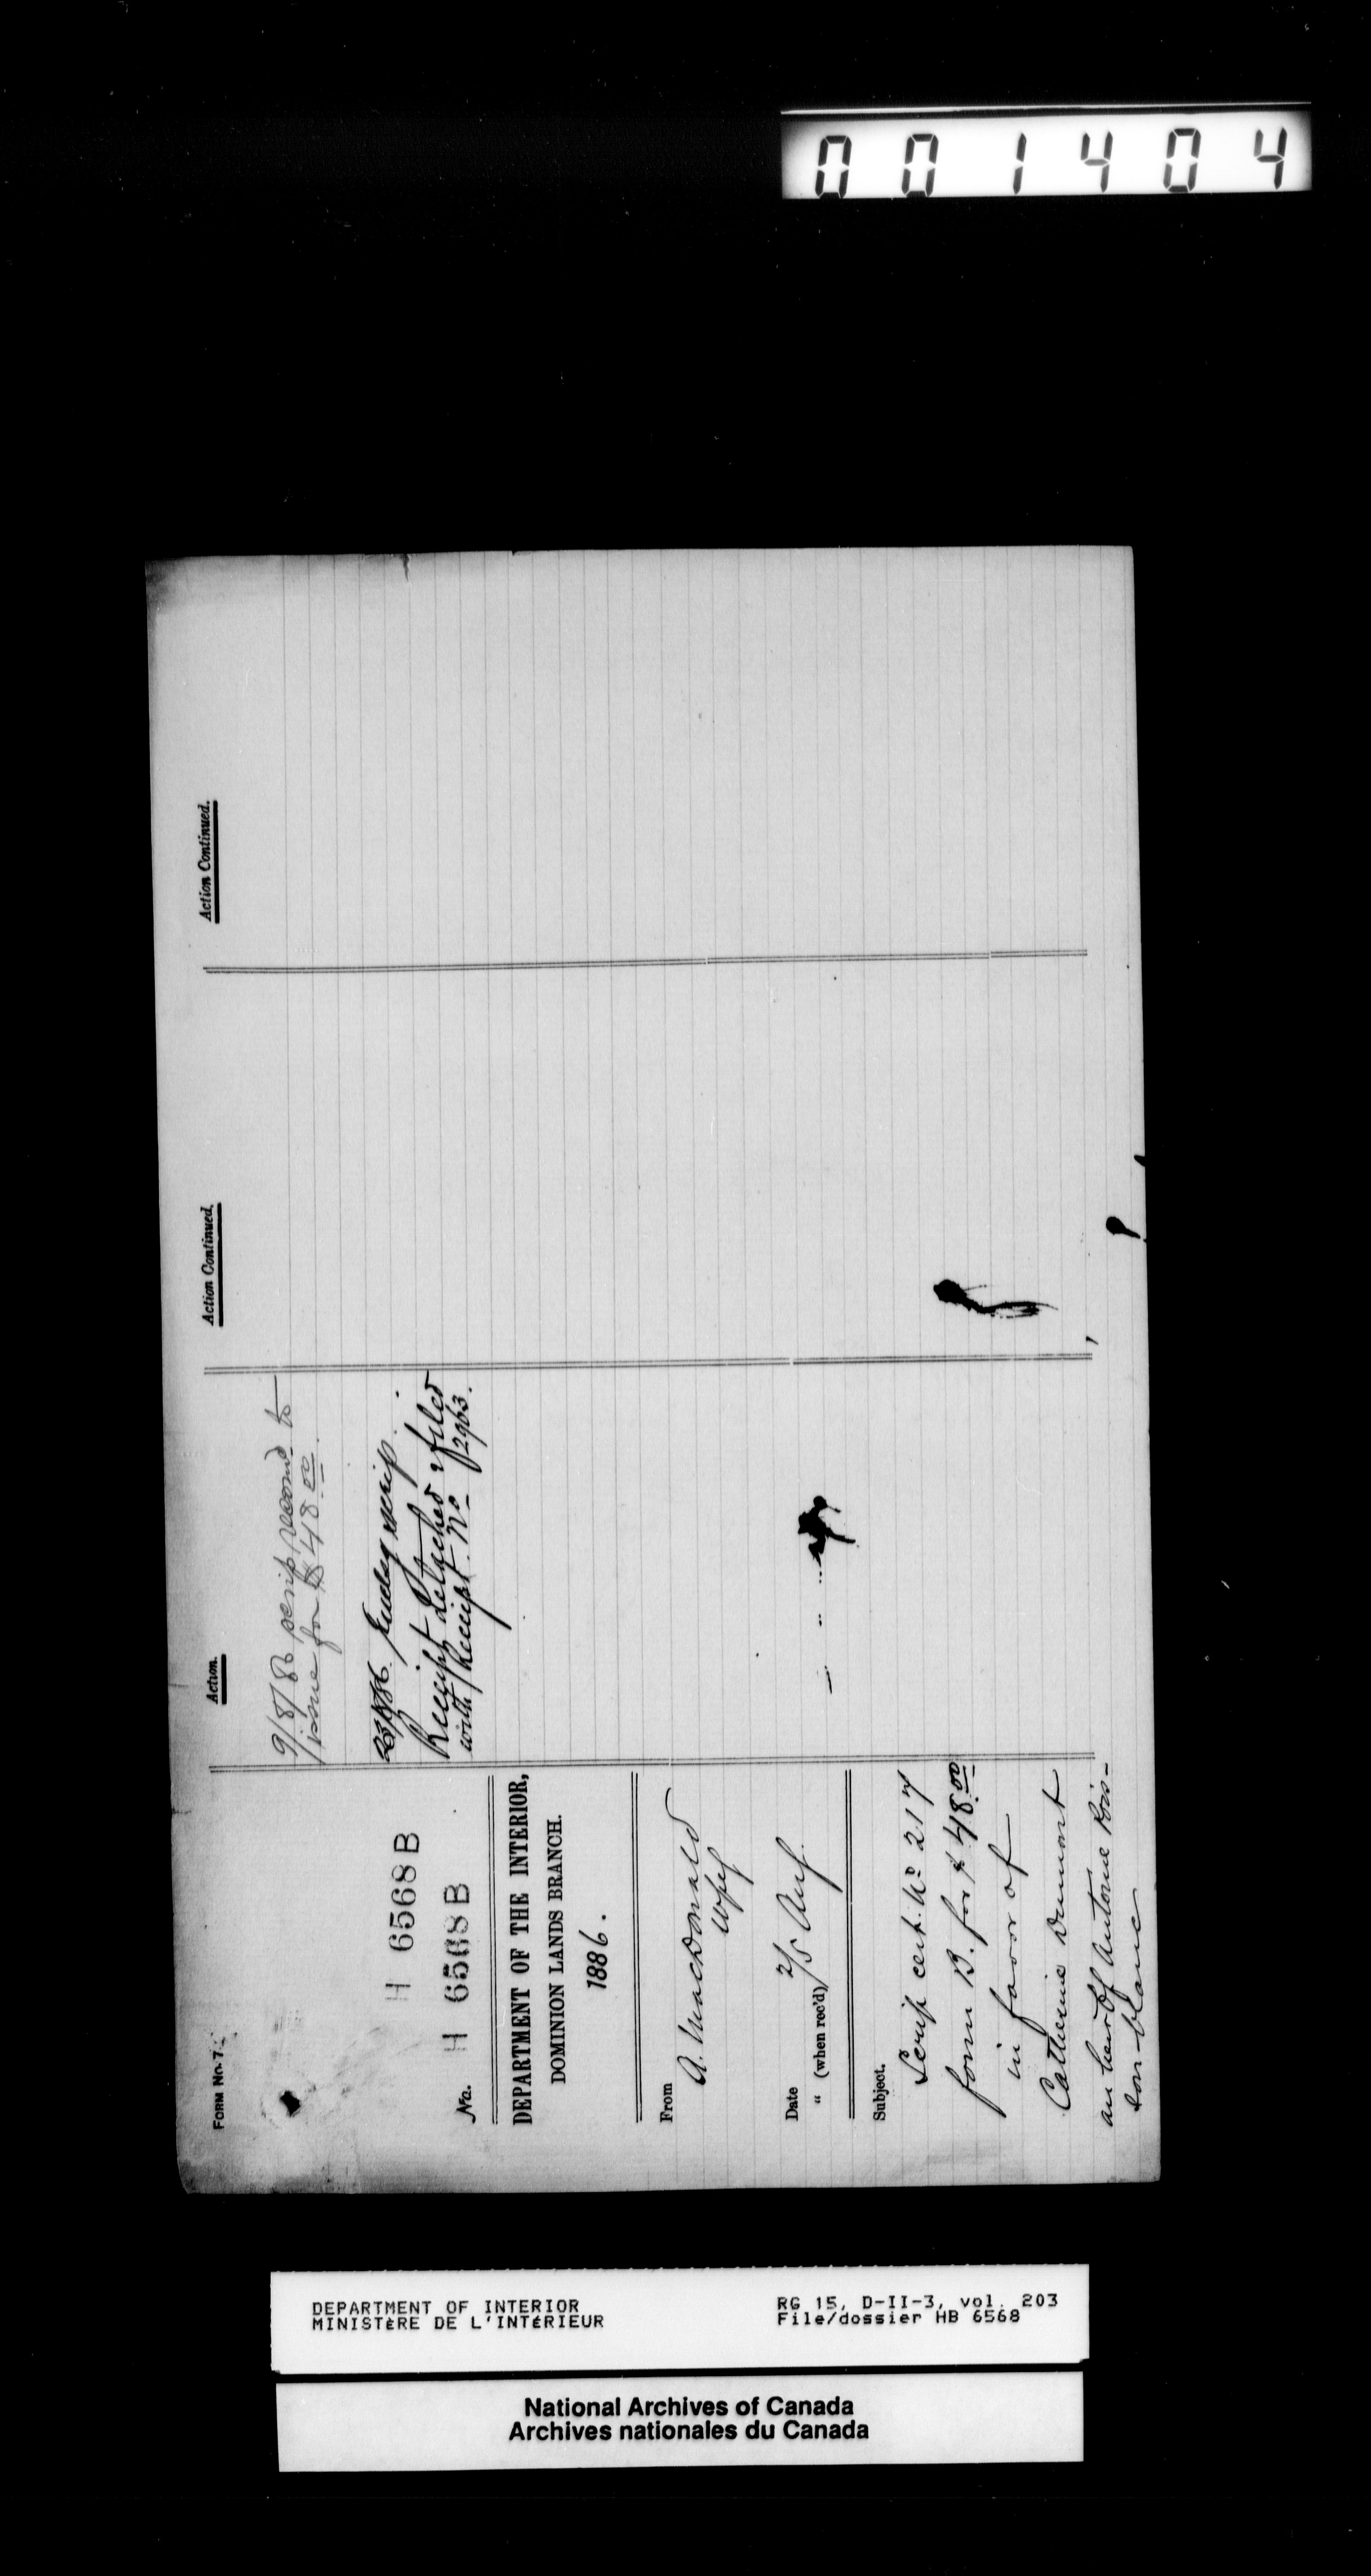 001404
FORM No. 7.
H 6568 B
No. H 6568 B
DEPARTMENT OF THE INTERIOR,
DOMINION LANDS BRANCH.
1886.
From A. MacDonald
Wpg
Date 2/5 Aug.
" (when rec'd)
Subject.
Scrip cert. No 217
form B. for $48.00
in favor of
Catherine Dumont
an heir of Antoine Pois-
son-blanc
Action.
9/8/86 scrip recomd to
issue for $48.00.
scrip.
Receipt detached & filed
with Receipt No 2963.
Action Continued.
Action Continued.
DEPARTMENT OF INTERIOR
MINISTÈRE DE L'INTÉRIEUR
RG 15, D-II-3, vol. 203
File/dossier HB 6568
National Archives of Canada
Archives nationales du Canada